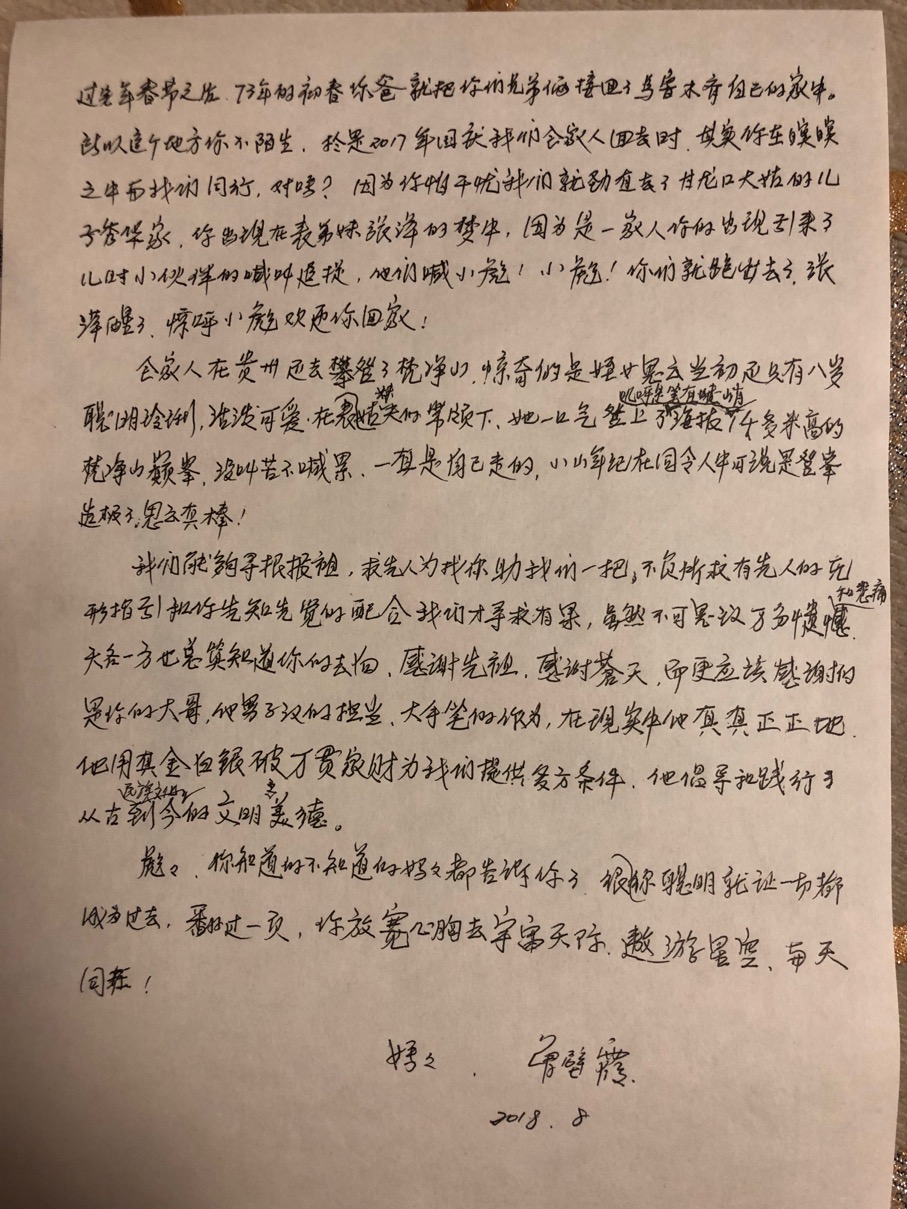 过完年春节之后、73年的初春你爸就把你们兄弟俩接回了乌鲁木齐自己的家中。
所以这个地方你不陌生，于是2017年国庆我们全家人回去时，其实你在冥冥
之中与我们同行，对吗？因为你怕干忧我们就劲直去了井龙口大姑的儿
子家，你出现在表弟妹张泽的梦中，因为是一家人你的出现引来了
儿时小伙伴的喊叫追捉，他们喊小彪！小彪！你们就跑出去了，张
泽醒了、惊呼小彪欢迎你回家！
全家人在贵州还去攀登了梵净山，惊奇的是娅女思云当初还只有八岁
聪明玲琍，活泼可爱，在表姑夫的带领下、她一口气登上了海拔千多米高的
梵净山巅峰，没叫苦不喊累、一直是自己走的，小小年纪在同令人中可说是登峯
造极了，思云真棒！
我们能夠寻根报祖，求先人为找你助我们一把，不负所求有先人的无
形指引和你先知先觉的配合我们才寻求有果，虽然不可思议万分遗憾和悲痛
天各一方也总算知道你的去向，感谢先祖，感谢蒼天，而更应该感谢的
是你的大哥，他男子汉的担当、大手笔的作为，在现实中他真真正正地、
他用真金白银破万贯家财为我们提供多方条件，他倡导和践行了
从古到今的文明美德。
彪彪、你知道的不知道的妈妈都告诉你了，你聪明就让一切都
成为过去，番过一页，你放宽心胸去宇宙天际、遨游星空、每天
回来！
妈妈、曾壁霞
2018.8